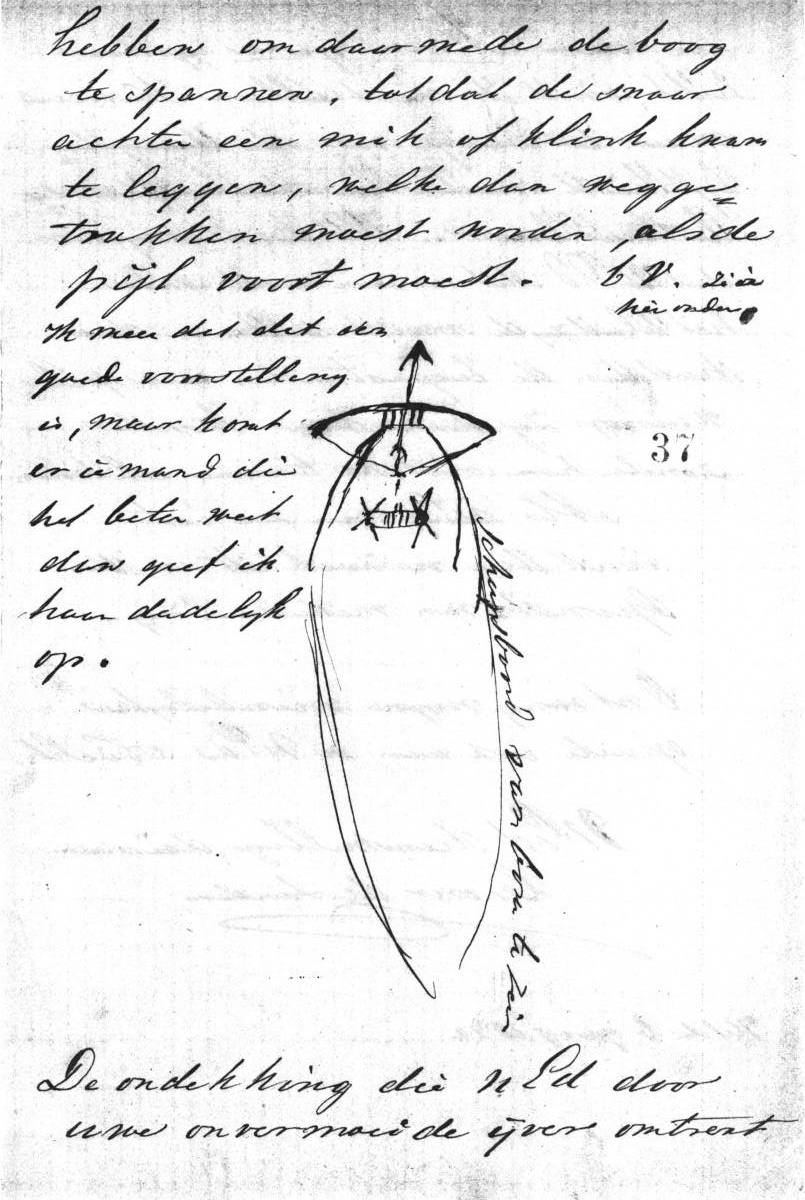 hebben om daarmede de boog
te spannen, totdat de snaar
achter een mik of klink kwam
te leggen, welke dan wegge=
trokken moest worden, als de
pijl voort moest. b V. zie
hier onder,
Ik meen dat dit een
goede voorstelling
is, maar komt
er iemand die
het beter weet
dan geef ik
haar dadelyk
op.
37
scheepsboord van boven te zien
De ondekking die UEd door
uwe onvermoeide ijver omtrent